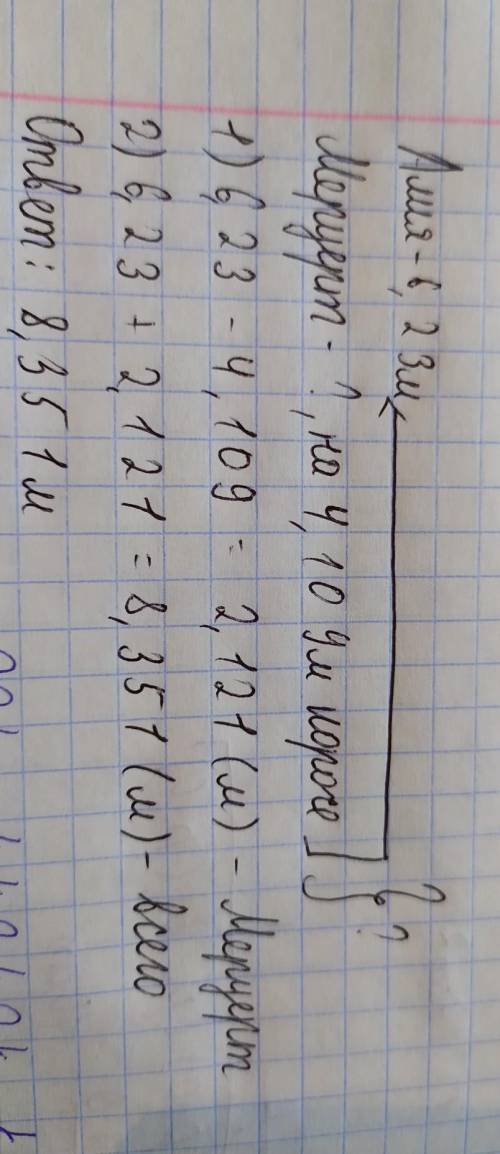 Алия - 6,23м
Меруерт - ?, на 4,109м короче } ?
1) 6,23 - 4,109 = 2,121 (м) - Меруерт
2) 6,23 + 2,121 = 8,351 (м) - всего
Ответ: 8,351м